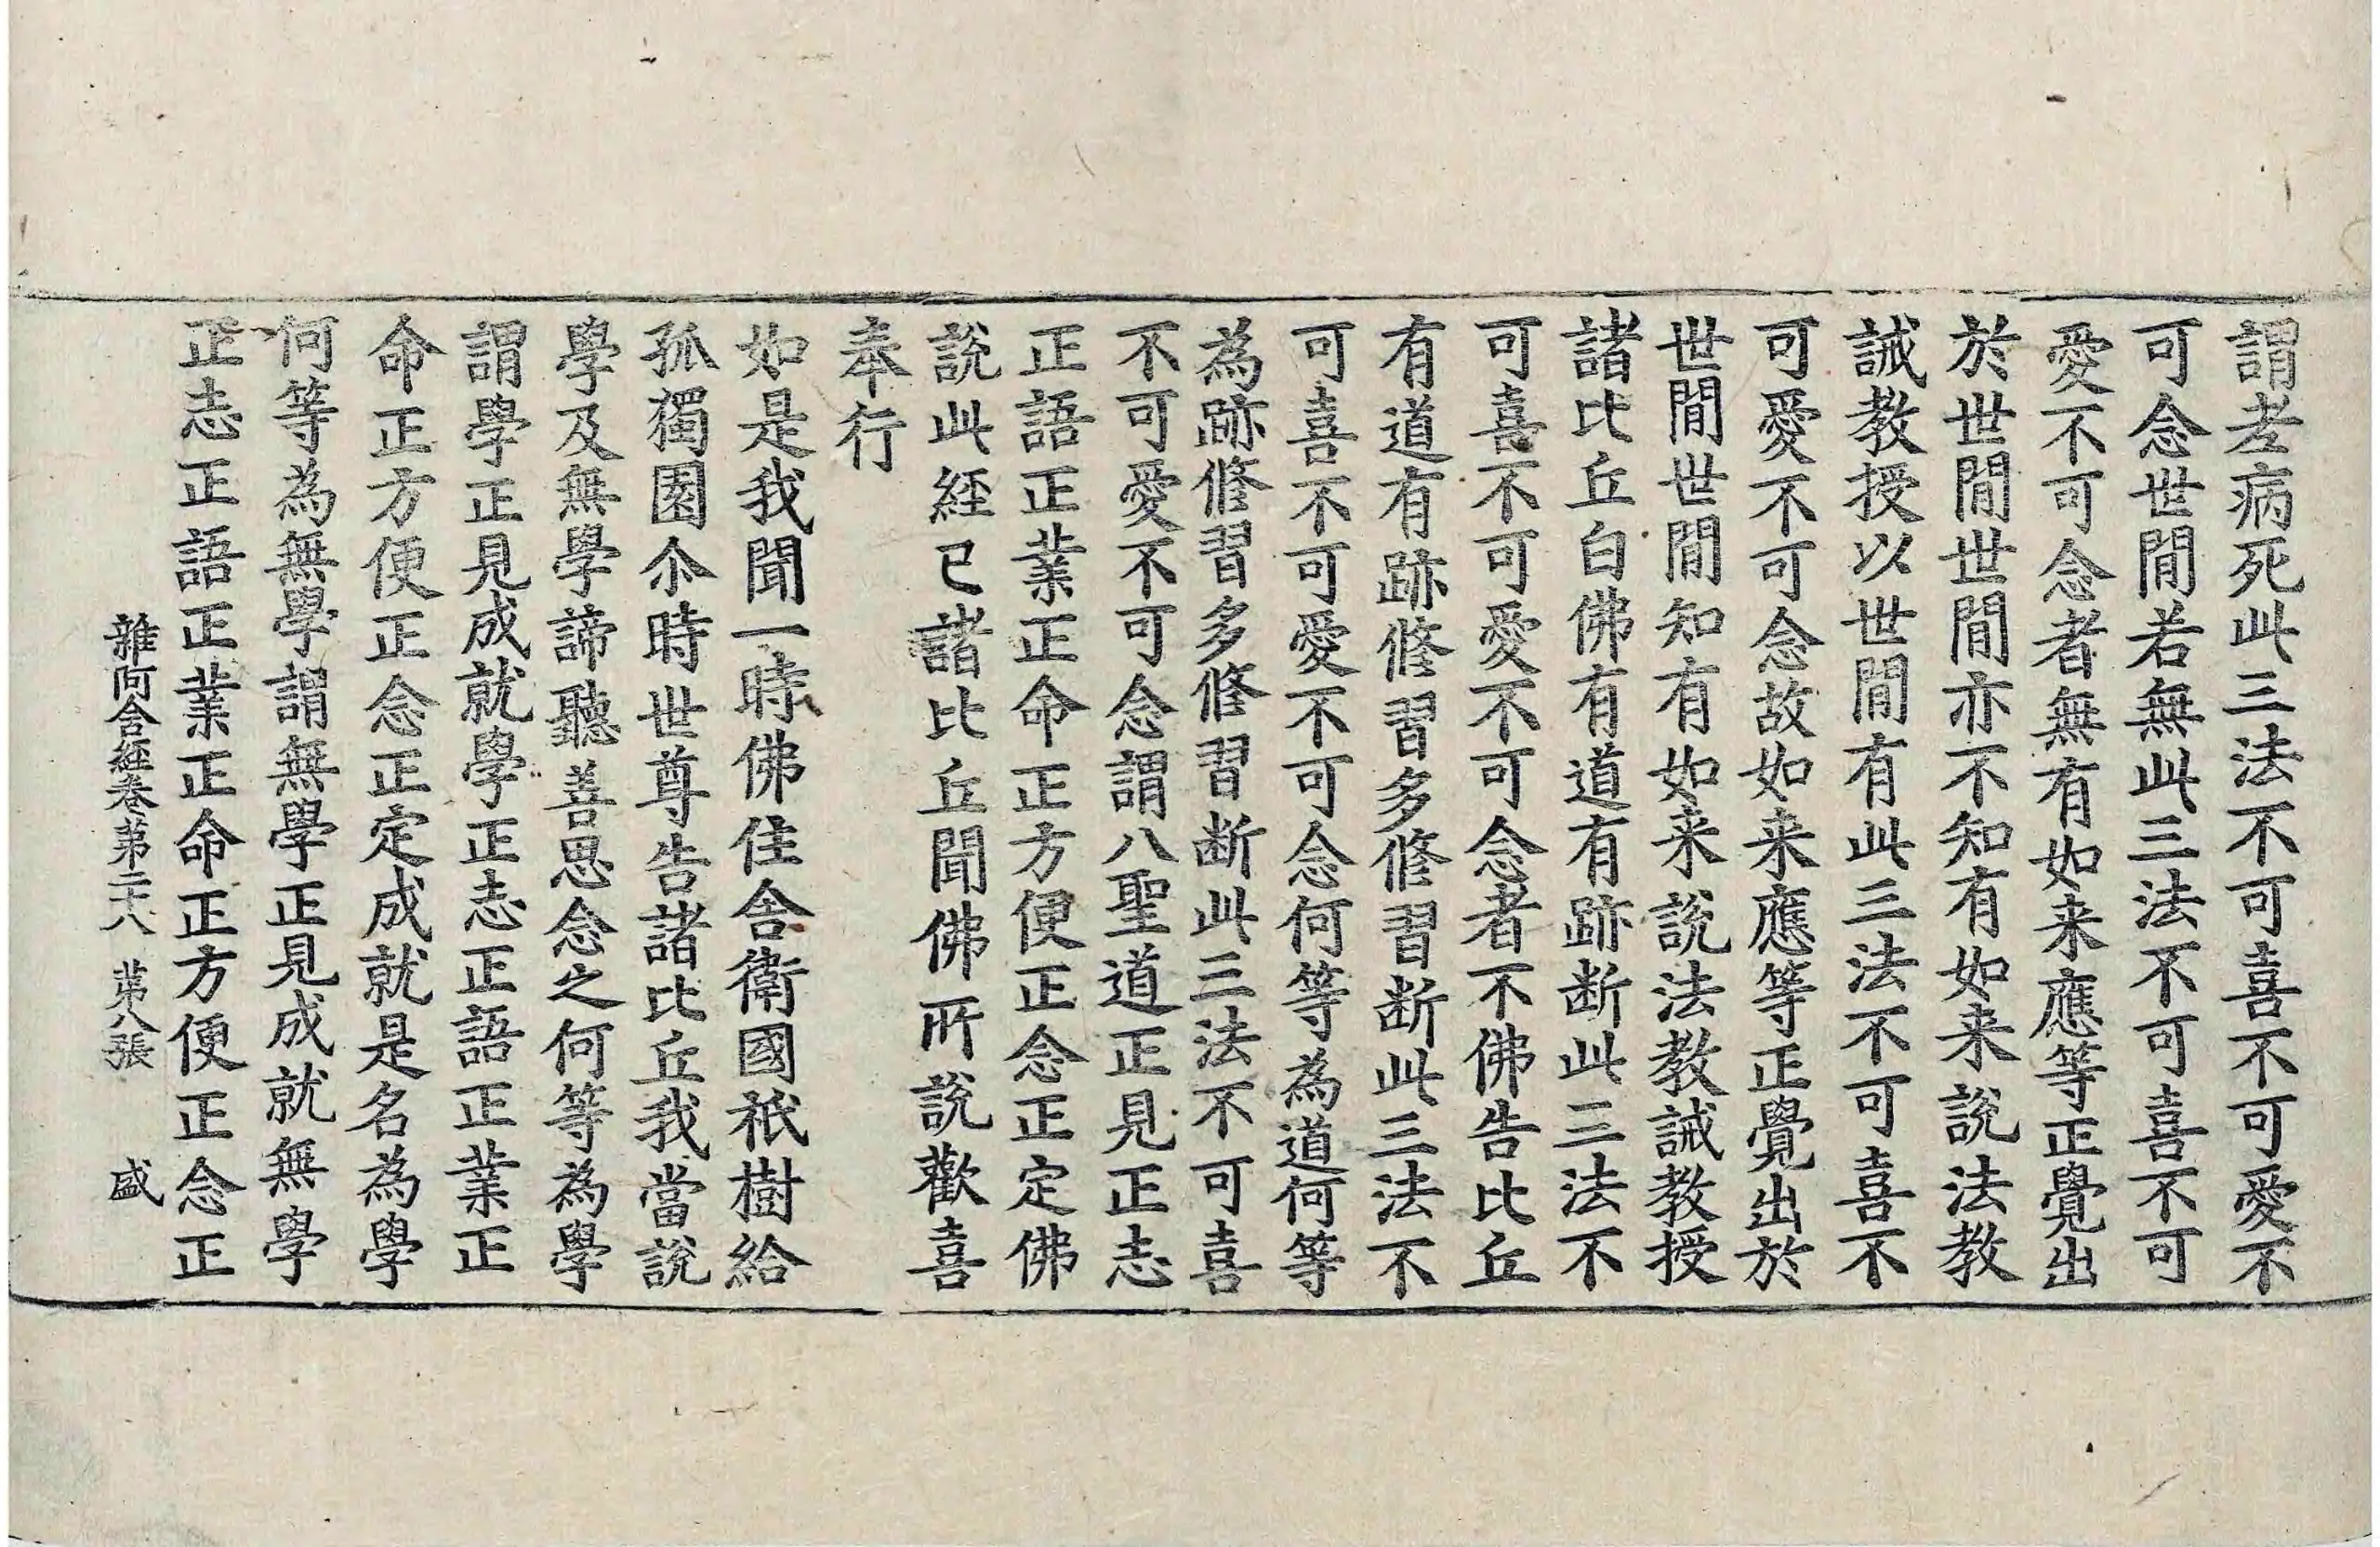 謂老病死此三法不可喜不可愛不
可念世閒若無此三法不可喜不可
愛不可念者無有如来應等正覺出
於世閒世閒亦不知有如来說法教
誡教授以世閒有此三法不可喜不
可愛不可念故如来應等正覺出於
世閒世閒知有如来說法教誡教授
諸比丘白佛有道有跡断此三法不
可喜不可愛不可念者不佛告比丘
有道有跡修習多修習断此三法不
可喜不可愛不可念何等為道何等
為跡修習多修習断此三法不可喜
不可愛不可念謂八聖道正見正志
正語正業正命正方便正念正定佛
說此經已諸比丘聞佛所說歡喜
奉行
如是我聞一時佛住舎衛國祇樹給
孤獨園尒時世尊告諸比丘我當說
學及無學諦聽善思念之何等為學
謂學正見成就學正志正語正業正
命正方便正念正定成就是名為學
何等為無學謂無學正見成就無學
正志正語正業正命正方便正念正
雜阿含経卷第二十八 第八張 盛